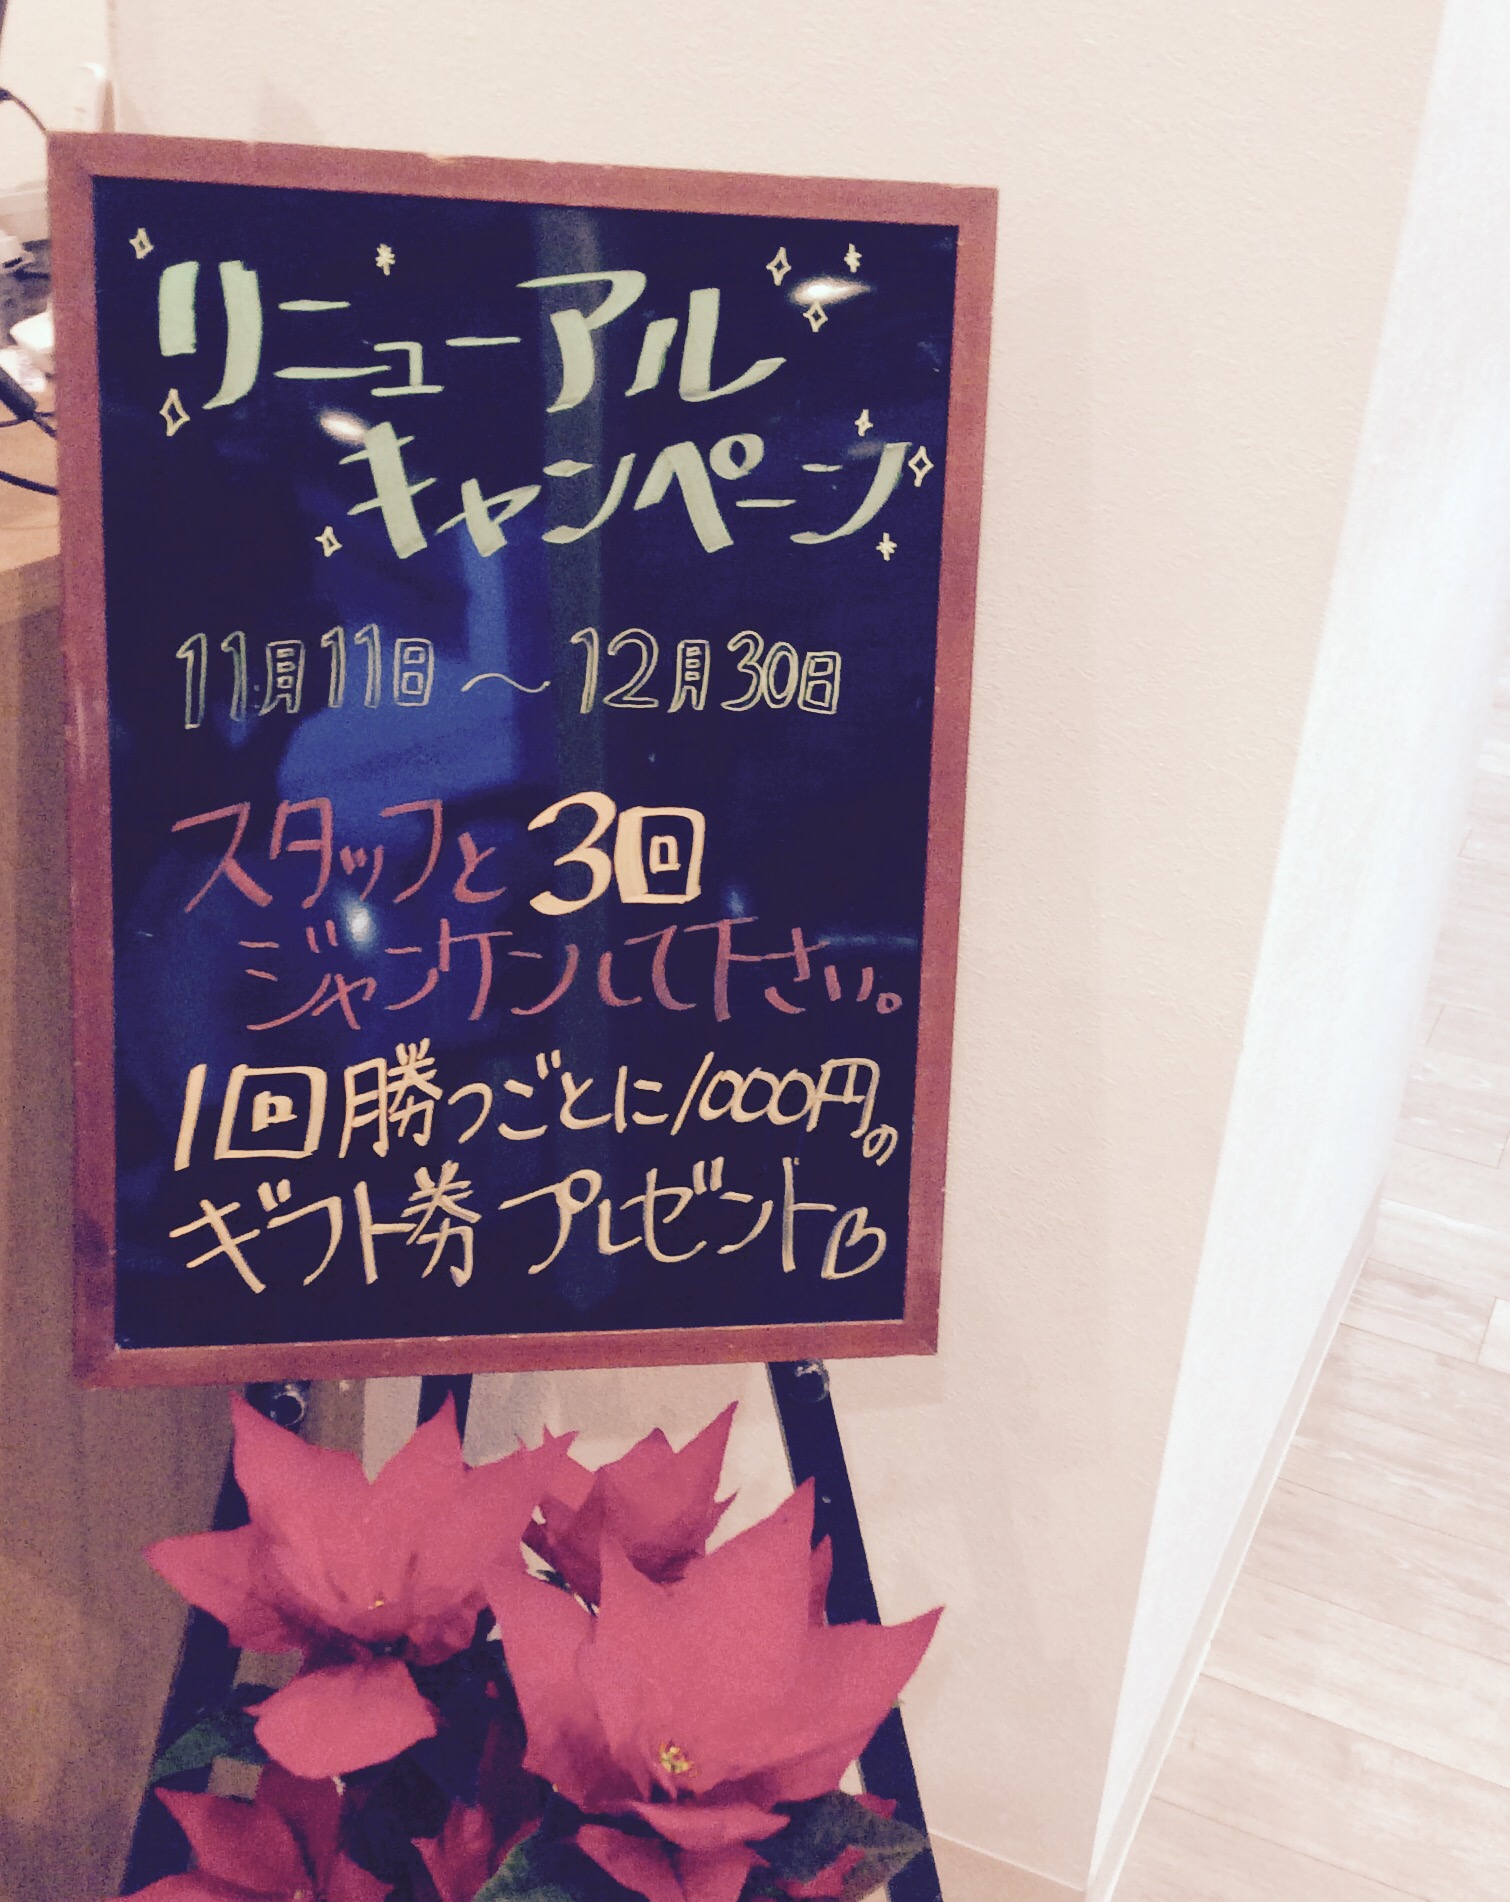 リニューアル
キャンペーン
11月11日～12月30日
スタッフと3回
ジャンケンして下さい。
1回勝つごとに1000円の
ギフト券プレゼント